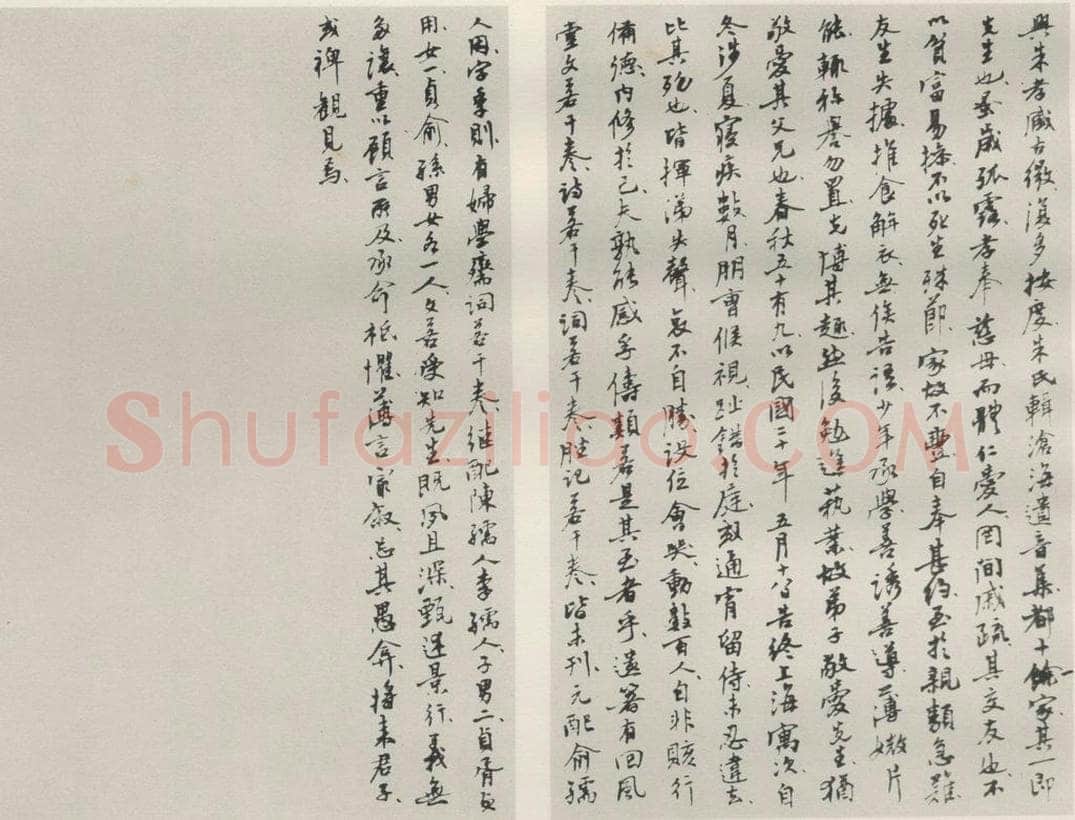 與朱孝臧古微復多按度朱氏輯滄海遺音集都十一餘家其一即
先生也蚤歲孤露孝奉慈母而體仁愛人罔間戚疏其交友也不
以貧富易操不以死生殊節家故不豐自奉甚約至於親類急難
友生失據推食解衣無俟告語少年承學善誘善導一薄媺片
能輒称譽勿置克博其趣然後勉進蓺業故弟子敬愛先生猶
敬愛其父兄也春秋五十有九以民國二十年五月十八日告終上海寓次自
冬涉夏寢疾數月朋曹候視趾錯於庭或通宵留侍未忍違去
比其殁也皆揮涕失聲哀不自勝設位會哭動數百人自非賅行
備德內修於己夫孰能感孚儔類若是其至者乎遺著有回風
堂文若干卷詩若干卷詞若干卷脞記若干卷皆未刊元配俞孺
人因字季則有婦學齋詞若干卷繼配陳孺人李孺人子男二貞胥貞
用女一貞俞孫男女各一人文吾受知先生既夙且深甄述景行義無
多讓重以顧言所及承命祗懼薄言家敘忘其愚弇揚來君子
或裨觀見焉
Shufaziliao.COM